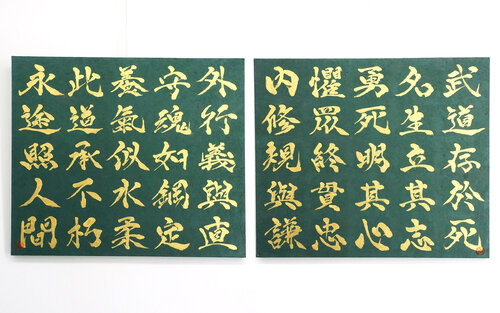 武道存於死
久生立其志
勇死明其心
懼眾終貫忠
內修規與謙
外行義與直
守魂如鋼定
養氣似水柔
此道承不朽
永途照人間